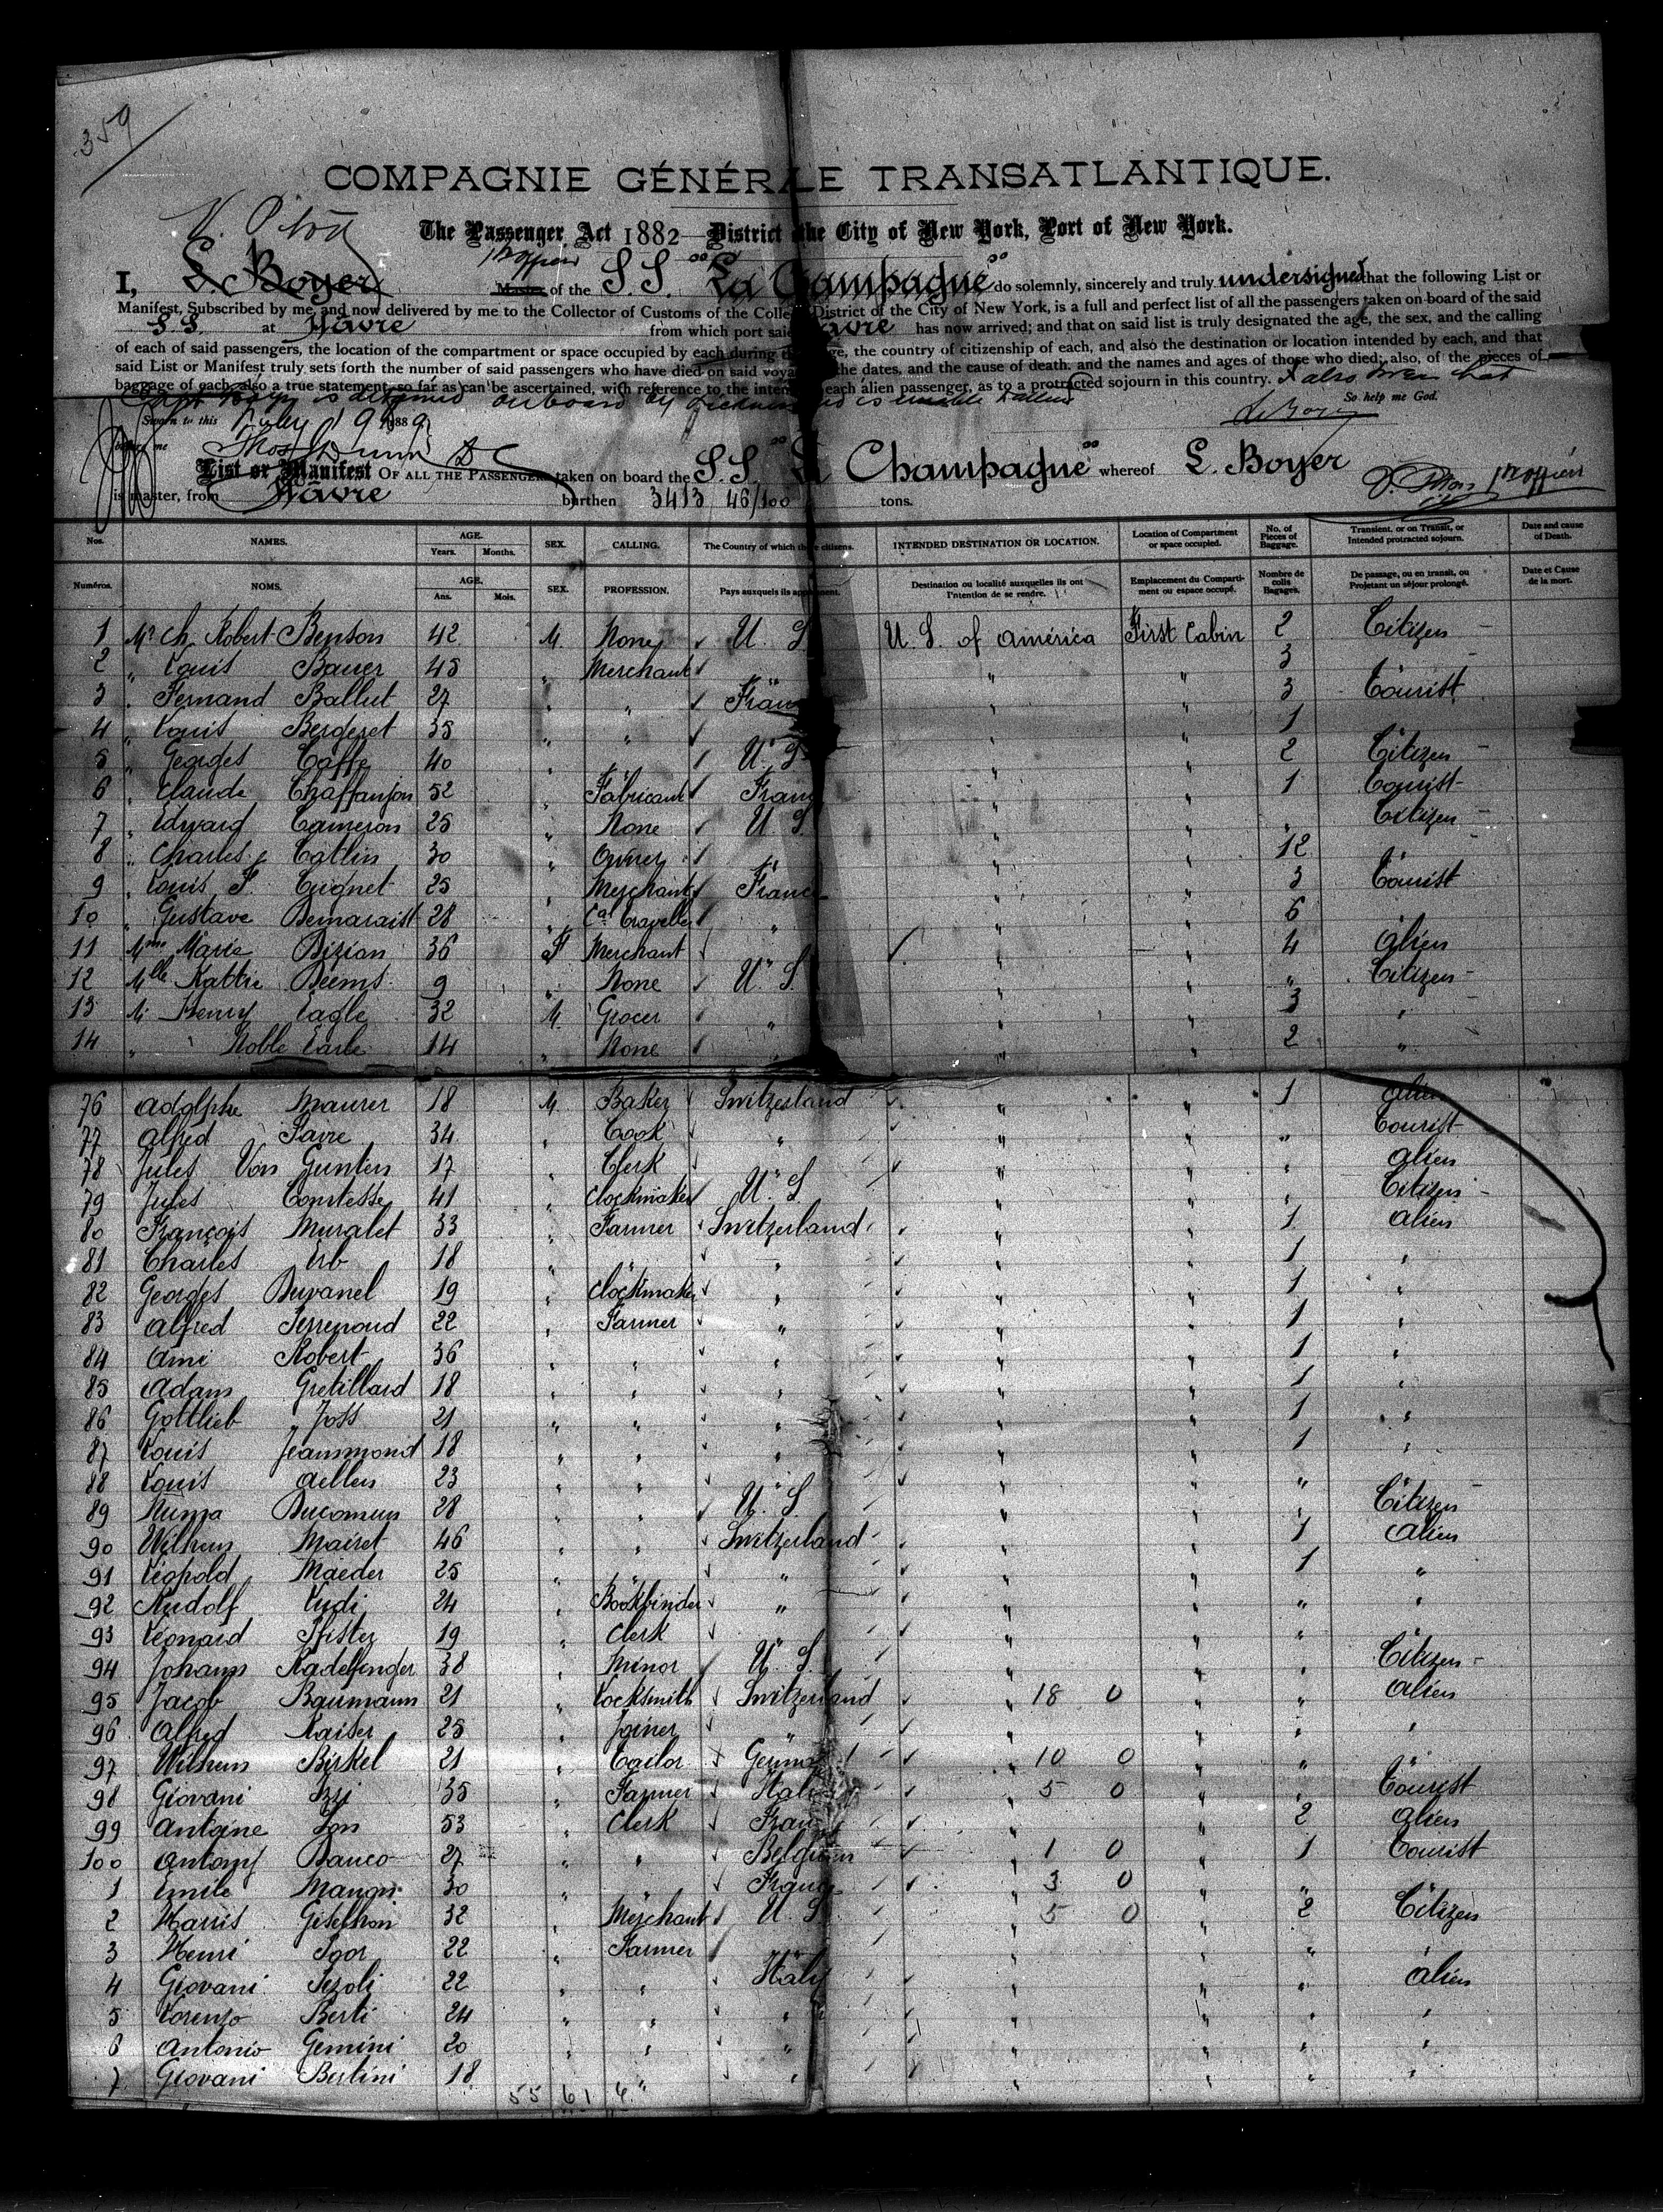 359
COMPAGNIE GÉNÉRALE TRANSATLANTIQUE.
The Passenger Act 1882 District the City of New York, Port of New York.
I, L. Boyer Master of the S.S. "La Champagne" do solemnly, sincerely and truly undersigned that the following List or
Manifest, Subscribed by me, and now delivered by me to the Collector of Customs of the Collec District of the City of New York, is a full and perfect list of all the passengers taken on board of the said
S.S. at Hâvre from which port said Hâvre has now arrived; and that on said list is truly designated the age, the sex, and the calling
of each of said passengers, the location of the compartment or space occupied by each during the ge, the country of citizenship of each, and also the destination or location intended by each, and that
said List or Manifest truly sets forth the number of said passengers who have died on said voya the dates, and the cause of death. and the names and ages of those who died; also, of the pieces of
baggage of each also a true statement, so far as can be ascertained, with reference to the inten each alien passenger, as to a protracted sojourn in this country. I also swear that
Capt Boyer is detained onboard by is unable
So help me God.
Sworn to this July 19 1889
before me Thos Dunn D C
L. Boyer
List or Manifest OF ALL THE PASSENGERS taken on board the S.S. "La Champagne" whereof L. Boyer
is master, from Hâvre burthen 3413 46/100 tons.
Nos. NAMES. AGE. Years. Months. SEX. CALLING. The Country of which they citizens. INTENDED DESTINATION OR LOCATION. Location of Compartment or space occupied. No. of Pieces of Baggage. Transient, or on Transit, or Intended protracted sojourn. Date and cause of Death.
Numéros. NOMS. AGE. Ans. Mois. SEX. PROFESSION. Pays auxquels ils appartiennent. Destination ou localité auxquelles ils ont l'intention de se rendre. Emplacement du Compartiment ou espace occupé. Nombre de colis Bagages. De passage, ou en transit, ou Projetant un séjour prolongé. Date et Cause de la mort.
1 Mr Ch. Robert Benson 42 M. None U. S. U. S. of América First Cabin 2 Citizen
2 " Louis Bauer 45 " Merchant " " " 3 "
3 " Fernand Ballut 27 " " France " " 3 Tourist
4 " Louis Bergeret 35 " " " " " 1 "
5 " Georges Caffe 40 " " U. S. " " 2 Citizen
6 " Claude Chaffanjon 52 " Fabricant France " " 1 Tourist
7 " Edward Cameron 25 " None U. S. " " " Citizen
8 " Charles Catlin 30 " Owner " " " 12 "
9 " Louis F. Cugnet 25 " Merchant France " " 3 Tourist
10 " Gustave Demaraist 28 " Cal Traveller " " " 6 "
11 Mme Marie Dizian 36 F Merchant " " " 4 alien
12 Mlle Kattie Deems 9 " None U. S. " " " Citizen
13 Mr Henry Eagle 32 M. Grocer " " " 3 "
14 " Noble Earle 14 " None " " " 2 "
76 Adolphe Maurer 18 M. Baker Switzerland " " 1 alien
77 Alfred Favre 34 " Cook " " " " Tourist
78 Jules Von Gunten 17 " Clerk " " " " alien
79 Jules Comtesse 41 " Clockmaker U. S. " " " Citizen
80 François Muralet 33 " Farmer Switzerland " " 1 alien
81 Charles Erb 18 " " " " " 1 "
82 Georges Duvanel 19 " Clockmaker " " " 1 "
83 Alfred Perrenoud 22 " Farmer " " " 1 "
84 Ami Robert 36 " " " " " 1 "
85 Adam Gretillard 18 " " " " " 1 "
86 Gottlieb Joss 21 " " " " " 1 "
87 Louis Jeanmonod 18 " " " " " 1 "
88 Louis Aellen 23 " " " " " "
89 Numa Ducomun 28 " " U. S. " " " Citizen
90 Wilhem Mairet 46 " " Switzerland " " 1 alien
91 Léopold Maeder 25 " " " " " 1 "
92 Rudolf Ludi 24 " Bookbinder " " " " "
93 Léonard Pfister 19 " Clerk " " " " "
94 Johann Kadelfinger 38 " Minor U. S. " " " Citizen
95 Jacob Baumann 21 " Locksmith Switzerland 18 0 " " alien
96 Alfred Kaiser 25 " Joiner " " " " "
97 Wilhem Birkel 21 " Tailor Germany 10 0 " " "
98 Giovani Izzi 35 " Farmer Italy 5 0 " " Tourist
99 Antoine Son 53 " Clerk France " " 2 alien
100 Antony Banco 27 " " Belgium 1 0 " 1 Tourist
1 Emile Mangin 30 " " France 3 0 " " "
2 Harris Gisethon 32 " Merchant U. S. 5 0 " 2 Citizen
3 Henri Igor 22 " Farmer " " " " "
4 Giovani Pezoli 22 " " Italy " " " alien
5 Lorenzo Berti 24 " " " " " " "
6 Antonio Gemini 20 " " " " " " "
7 Giovani Bertini 18 " " " " " " "
55 61 4